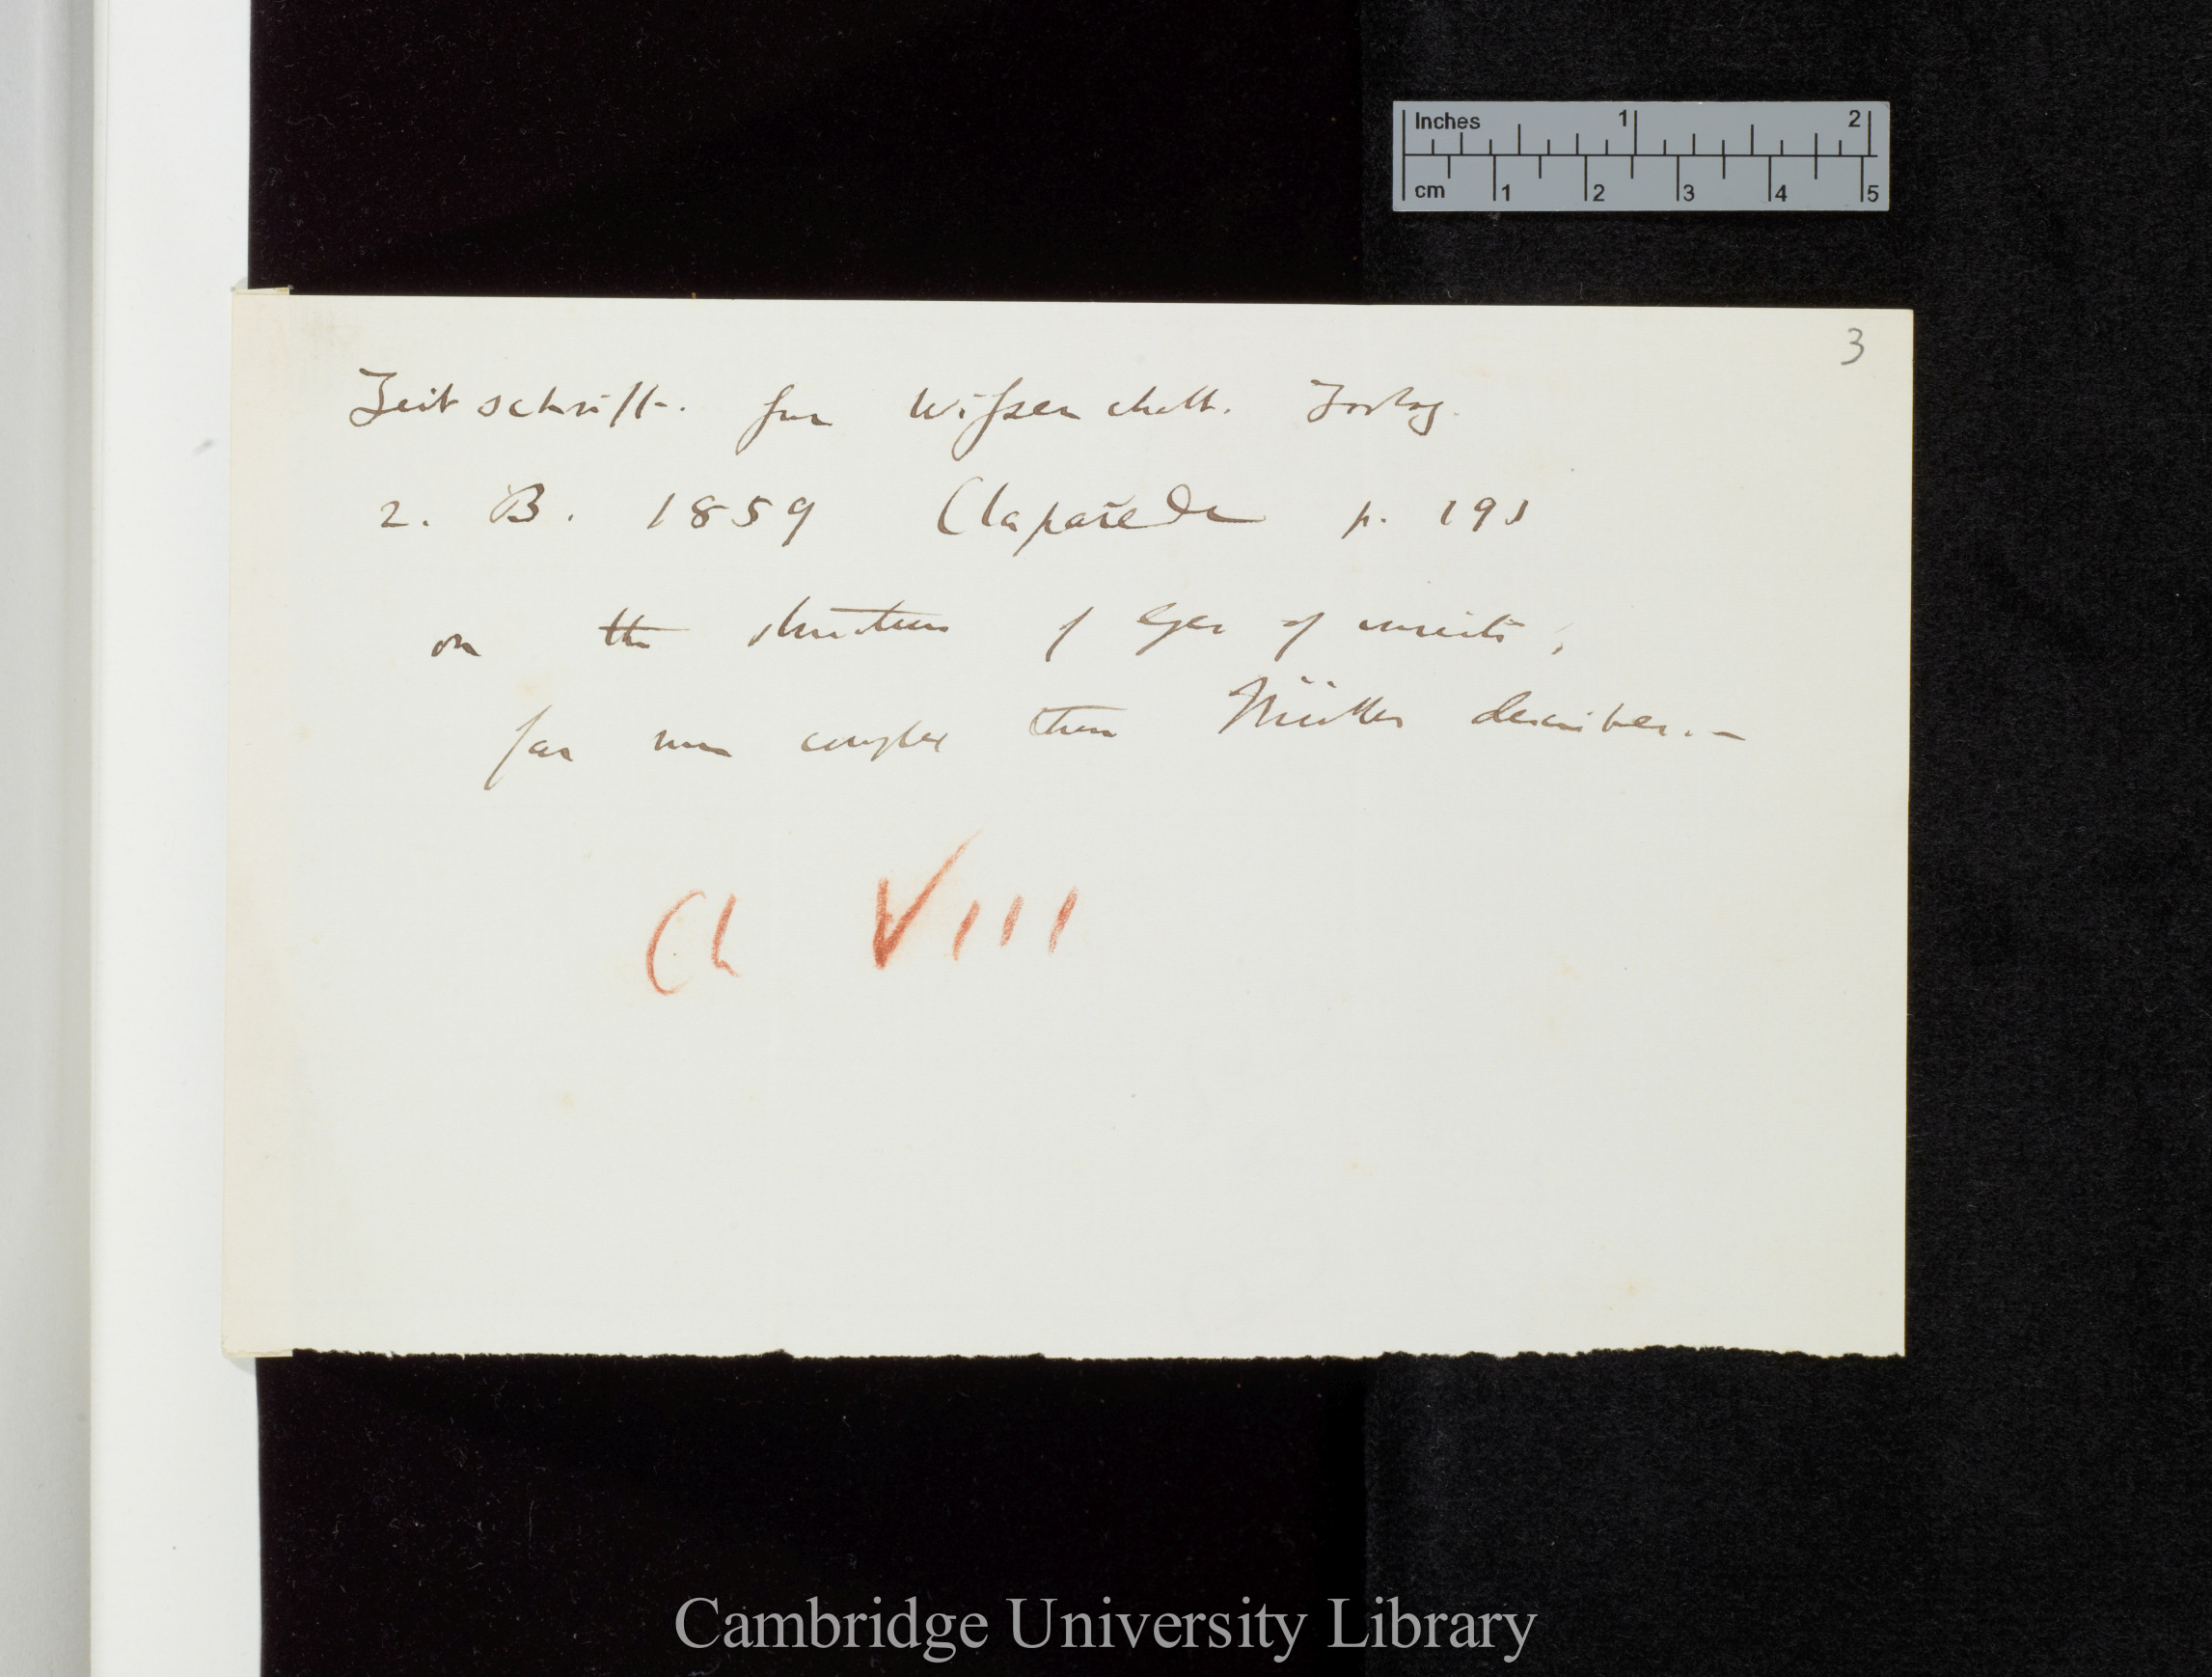 Inches 1 2
cm 1 2 3 4 5
3
Zeitschrift. fur Wissenchatt. Zoolog.
2. B. 1859 Claparede p. 191
on the structure of eyes of insects;
far more complex than Müller describes. —
Ch VIII
Cambridge University Library